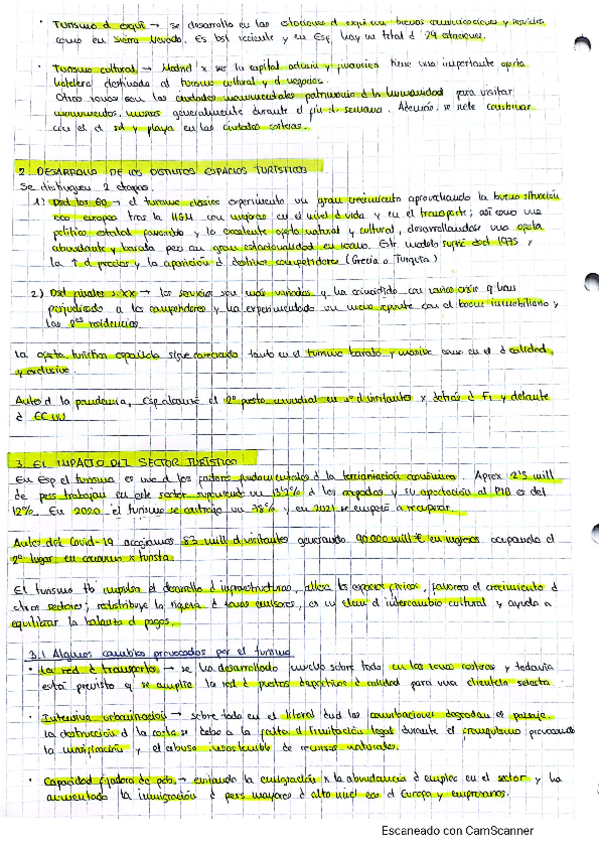 · Turismo d esquí → se desarrolla en las estaciones d esquí con buenas comunicaciones y servicios
como en Sierra Nevada. Es bst reciente y en Esp hay un total d 29 estaciones.
· Turismo cultural → Madrid x ser la capital tiene una importante oferta
hotelera destinada al turismo cultural y d negocios.
Otras zonas son las ciudades monumentales patrimonio d la humanidad para visitar
monumentos, museos generalmente durante el fin d semana. Además, se suele combinar
con el d sol y playa en las ciudades costeras.
2. DESARROLLO DE LOS DISTINTOS ESPACIOS TURÍSTICOS
Se distinguen 2 etapas.
1) Dsd los 60 → el turismo clásico experimentó un gran crecimiento aprovechando la buena situación
eco europea tras la IIGM con mejoras en el nivel d vida y en el transporte; así como una
política estatal favorable y la excelente oferta natural y cultural, desarrollándose una oferta
abundante y barata pero con gran estacionalidad en verano. Este modelo dsd 1975 x
la ↑ d precios y la aparición d destinos competidores (Grecia o Turquía)
2) Dsd finales s.XX → los servicios son más variados y ha coincidido con varias crisis q han
perjudicado a los competidores y ha experimentado un nuevo repunte con el boom inmobiliario y
las 2ªs residencias.
La oferta turística española sigue creciendo tanto en el turismo barato y masivo como en el d calidad
y exclusivo.
Antes d la pandemia, Esp alcanzó el 2º puesto mundial en nº d visitantes x detrás d F1 y delante
d EEUU
3. EL IMPACTO DEL SECTOR TURÍSTICO
En Esp el turismo es uno d los factores fundamentales d la terciarización económica. Aprox 2'5 mill
de pers trabajan en este sector suponiendo un d los ocupados y su aportación al PIB es del
12%. En 2020 el turismo se contrajo un 78% y en 2021 se empezó a recuperar.
Antes del Covid-19 acogíamos 83 mill d visitantes generando 90.000 mill € en ingresos ocupando el
2º lugar en x turista.
El turismo tb impulsa el desarrollo d infraestructuras, los espacios cívicos, favorece el crecimiento d
otros sectores; redistribuye la riqueza d zonas emisoras, es un elem d intercambio cultural y ayuda a
equilibrar la balanza d pagos.
3.1 Algunos cambios provocados por el turismo
· La red d transportes → se ha desarrollado mucho sobre todo en las zonas costeras y todavía
está previsto q se amplíe la red d puertos deportivos d calidad para una clientela selecta.
· Intensiva urbanización → sobre todo en el litoral dnd las conurbaciones degradan el paisaje.
La destrucción d la costa se debe a la falta d limitación legal durante el franquismo provocando
la masificación y el abuso insostenible de recursos naturales.
· Capacidad fijadora de pob. → evitando la emigración x la abundancia d empleo en el sector y ha
aumentado la inmigración d pers mayores d alto nivel eco d Europa y empresarios.
Escaneado con CamScanner